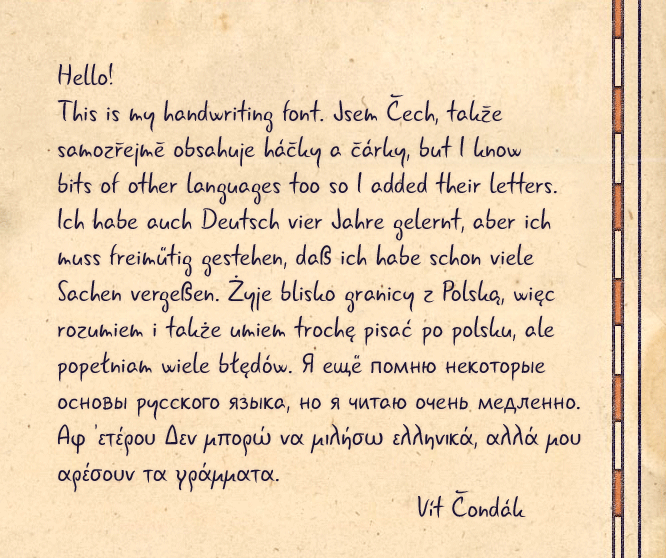 Hello!
This is my handwriting font. Jsem Čech, takže
samozřejmě obsahuje háčky a čárky, but I know
bits of other languages too so I added their letters.
Ich habe auch Deutsch vier Jahre gelernt, aber ich
muss freimütig gestehen, daß ich habe schon viele
Sachen vergeßen. Żyje blisko granicy z Polską, więc
rozumiem i także umiem trochę pisać po polsku, ale
popełniam wiele błędów. Я ещё помню некоторые
основы русского языка, но я читаю очень медленно.
Αφ ΄ετέρου Δεν μπορώ να μιλήσω ελληνικά, αλλά μου
αρέσουν τα γράμματα.
Vít Čondák